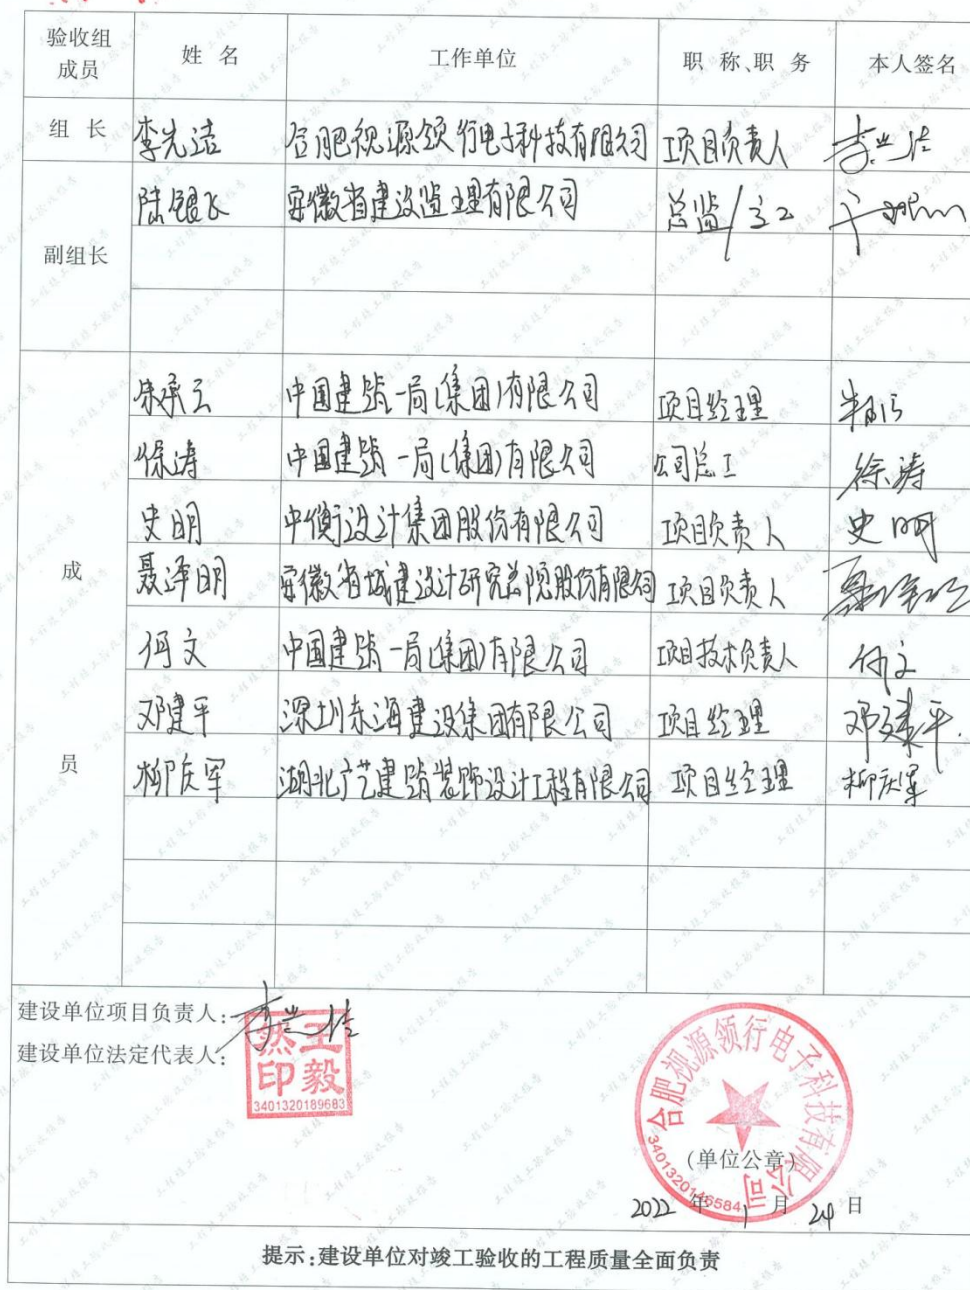 验收组成员 姓 名 工作单位 职 称、职 务 本人签名
组 长 李先洁 合肥视源领行电子科技有限公司 项目负责人
副组长 陆银飞 安徽省建设监理有限公司 总监/
成员
朱承云 中国建筑一局(集团)有限公司 项目经理
徐涛 中国建筑一局(集团)有限公司 公司总工 徐涛
史明 中衡设计集团股份有限公司 项目负责人 史明
聂泽明 安徽省城建设计研究总院股份有限公司 项目负责人 聂泽明
何文 中国建筑一局(集团)有限公司 项目技术负责人 何文
邓建平 深圳赤海建设集团有限公司 项目经理 邓建平
柳庆军 湖北广艺建筑装饰设计工程有限公司 项目经理 柳庆军
建设单位项目负责人:
建设单位法定代表人:
王毅然印
3401320189683
合肥视源领行电子科技有限公司
(单位公章)
2022 年 1 月 24 日
提示:建设单位对竣工验收的工程质量全面负责
工程竣工验收报告